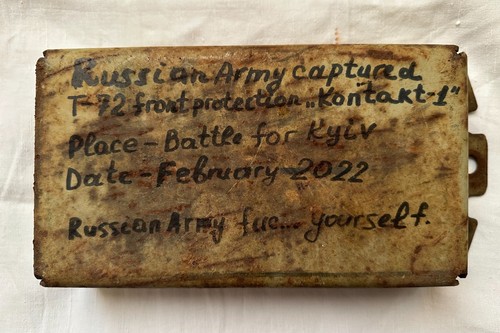 Russian Army captured
T-72 front protection „Kontakt-1"
Place - Battle for Kyiv
Date - February 2022
Russian Army fuc... yourself.